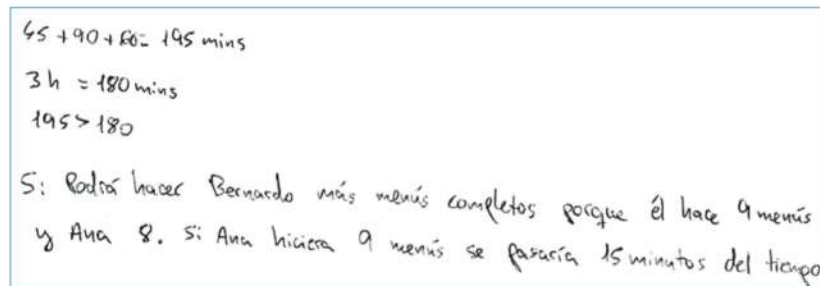 45 + 90 + 60 = 195 mins
3 h = 180 mins
195 > 180
S: Podrá hacer Bernardo más menús completos porque él hace 9 menús
y Ana 8. Si Ana hiciera 9 menús se pasaría 15 minutos del tiempo